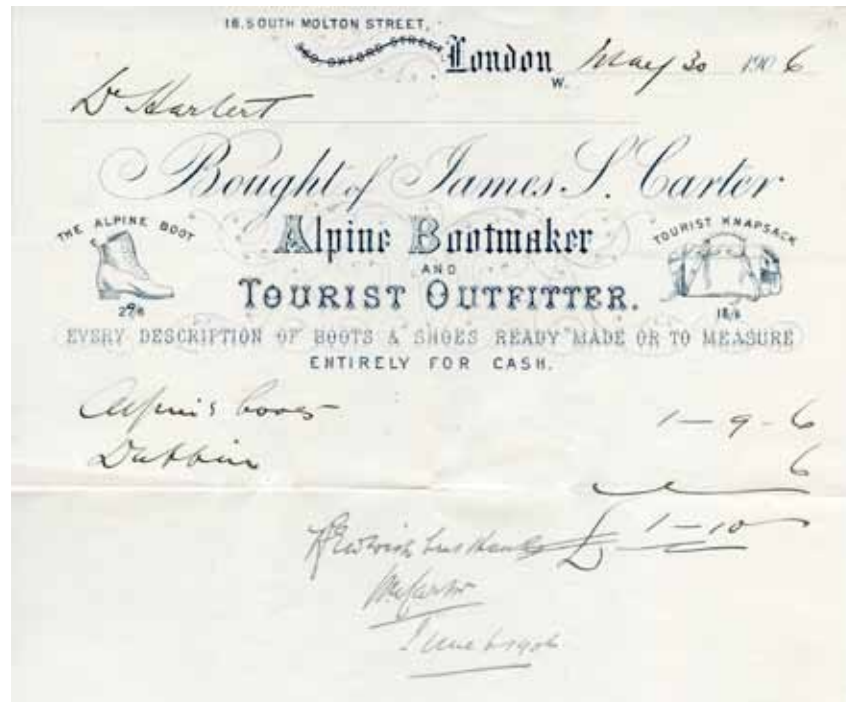 18, SOUTH MOLTON STREET,
OXFORD STREET,
London
W.
May 30 1906
Dr Harbert
Bought of James S. Carter
THE ALPINE BOOT
Alpine Bootmaker
TOURIST KNAPSACK
AND
TOURIST OUTFITTER.
18/6
EVERY DESCRIPTION OF BOOTS & SHOES READY MADE OR TO MEASURE
ENTIRELY FOR CASH.
Alpine boots 1-9-6
Dubbin 6
£1-10
with thanks
June 6 1906